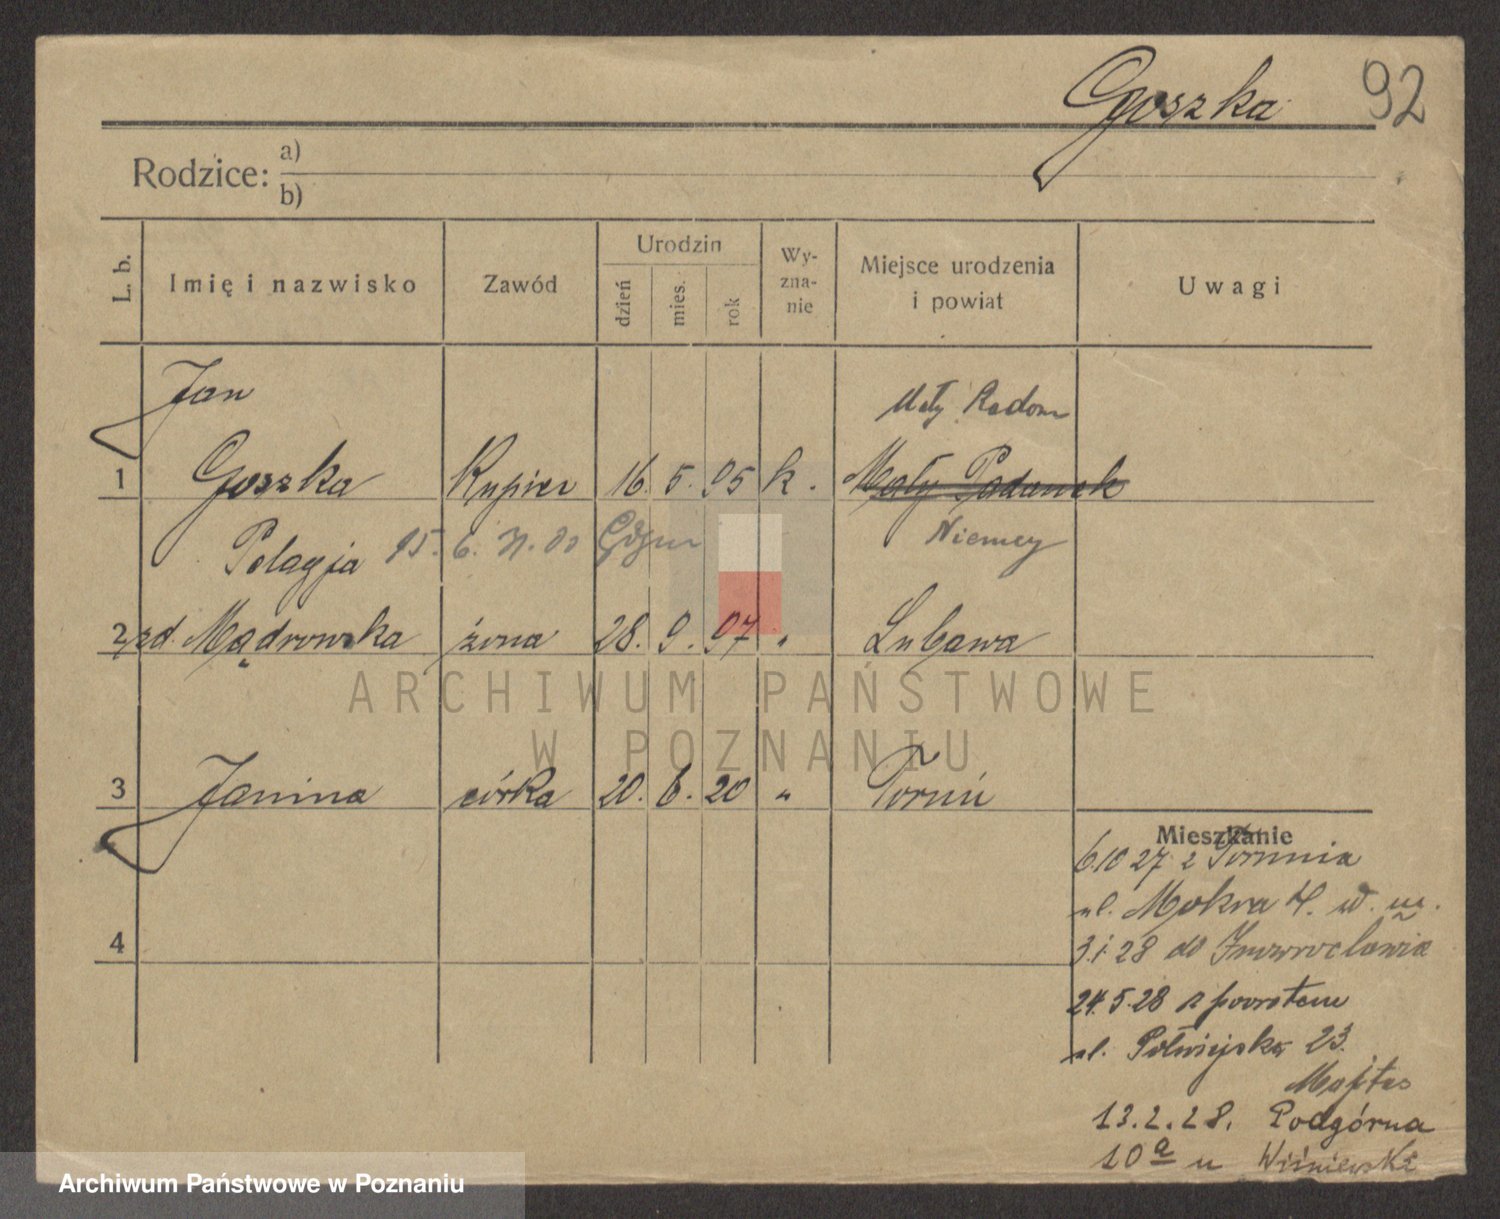 Goszka 92
Rodzice: a)
b)
L. b.
Imię i nazwisko
Zawód
Urodzin
dzień
mies.
rok
Wy-
zna-
nie
Miejsce urodzenia
i powiat
Uwagi
Jan
Mały Radom
1 Goszka Kupiec 16. 5. 95 k. Mały Podanek
Pelagja 15. 6. 00 Niemcy
2 zd. Mądrowska żona 28. 9. 97 " Lubawa
ARCHIWUM PAŃSTWOWE
W POZNANIU
3 Janina córka 20. 6. 20 " Toruń
Mieszkanie
6 10 27 z Torunia
ul. Mokra 4. w. m.
4
3.1.28 do Inowrocławia
24.5.28 z powrotem
ul. Półwiejska 23.
13.2.28. Podgórna
10a u Wiśniewski
Archiwum Państwowe w Poznaniu